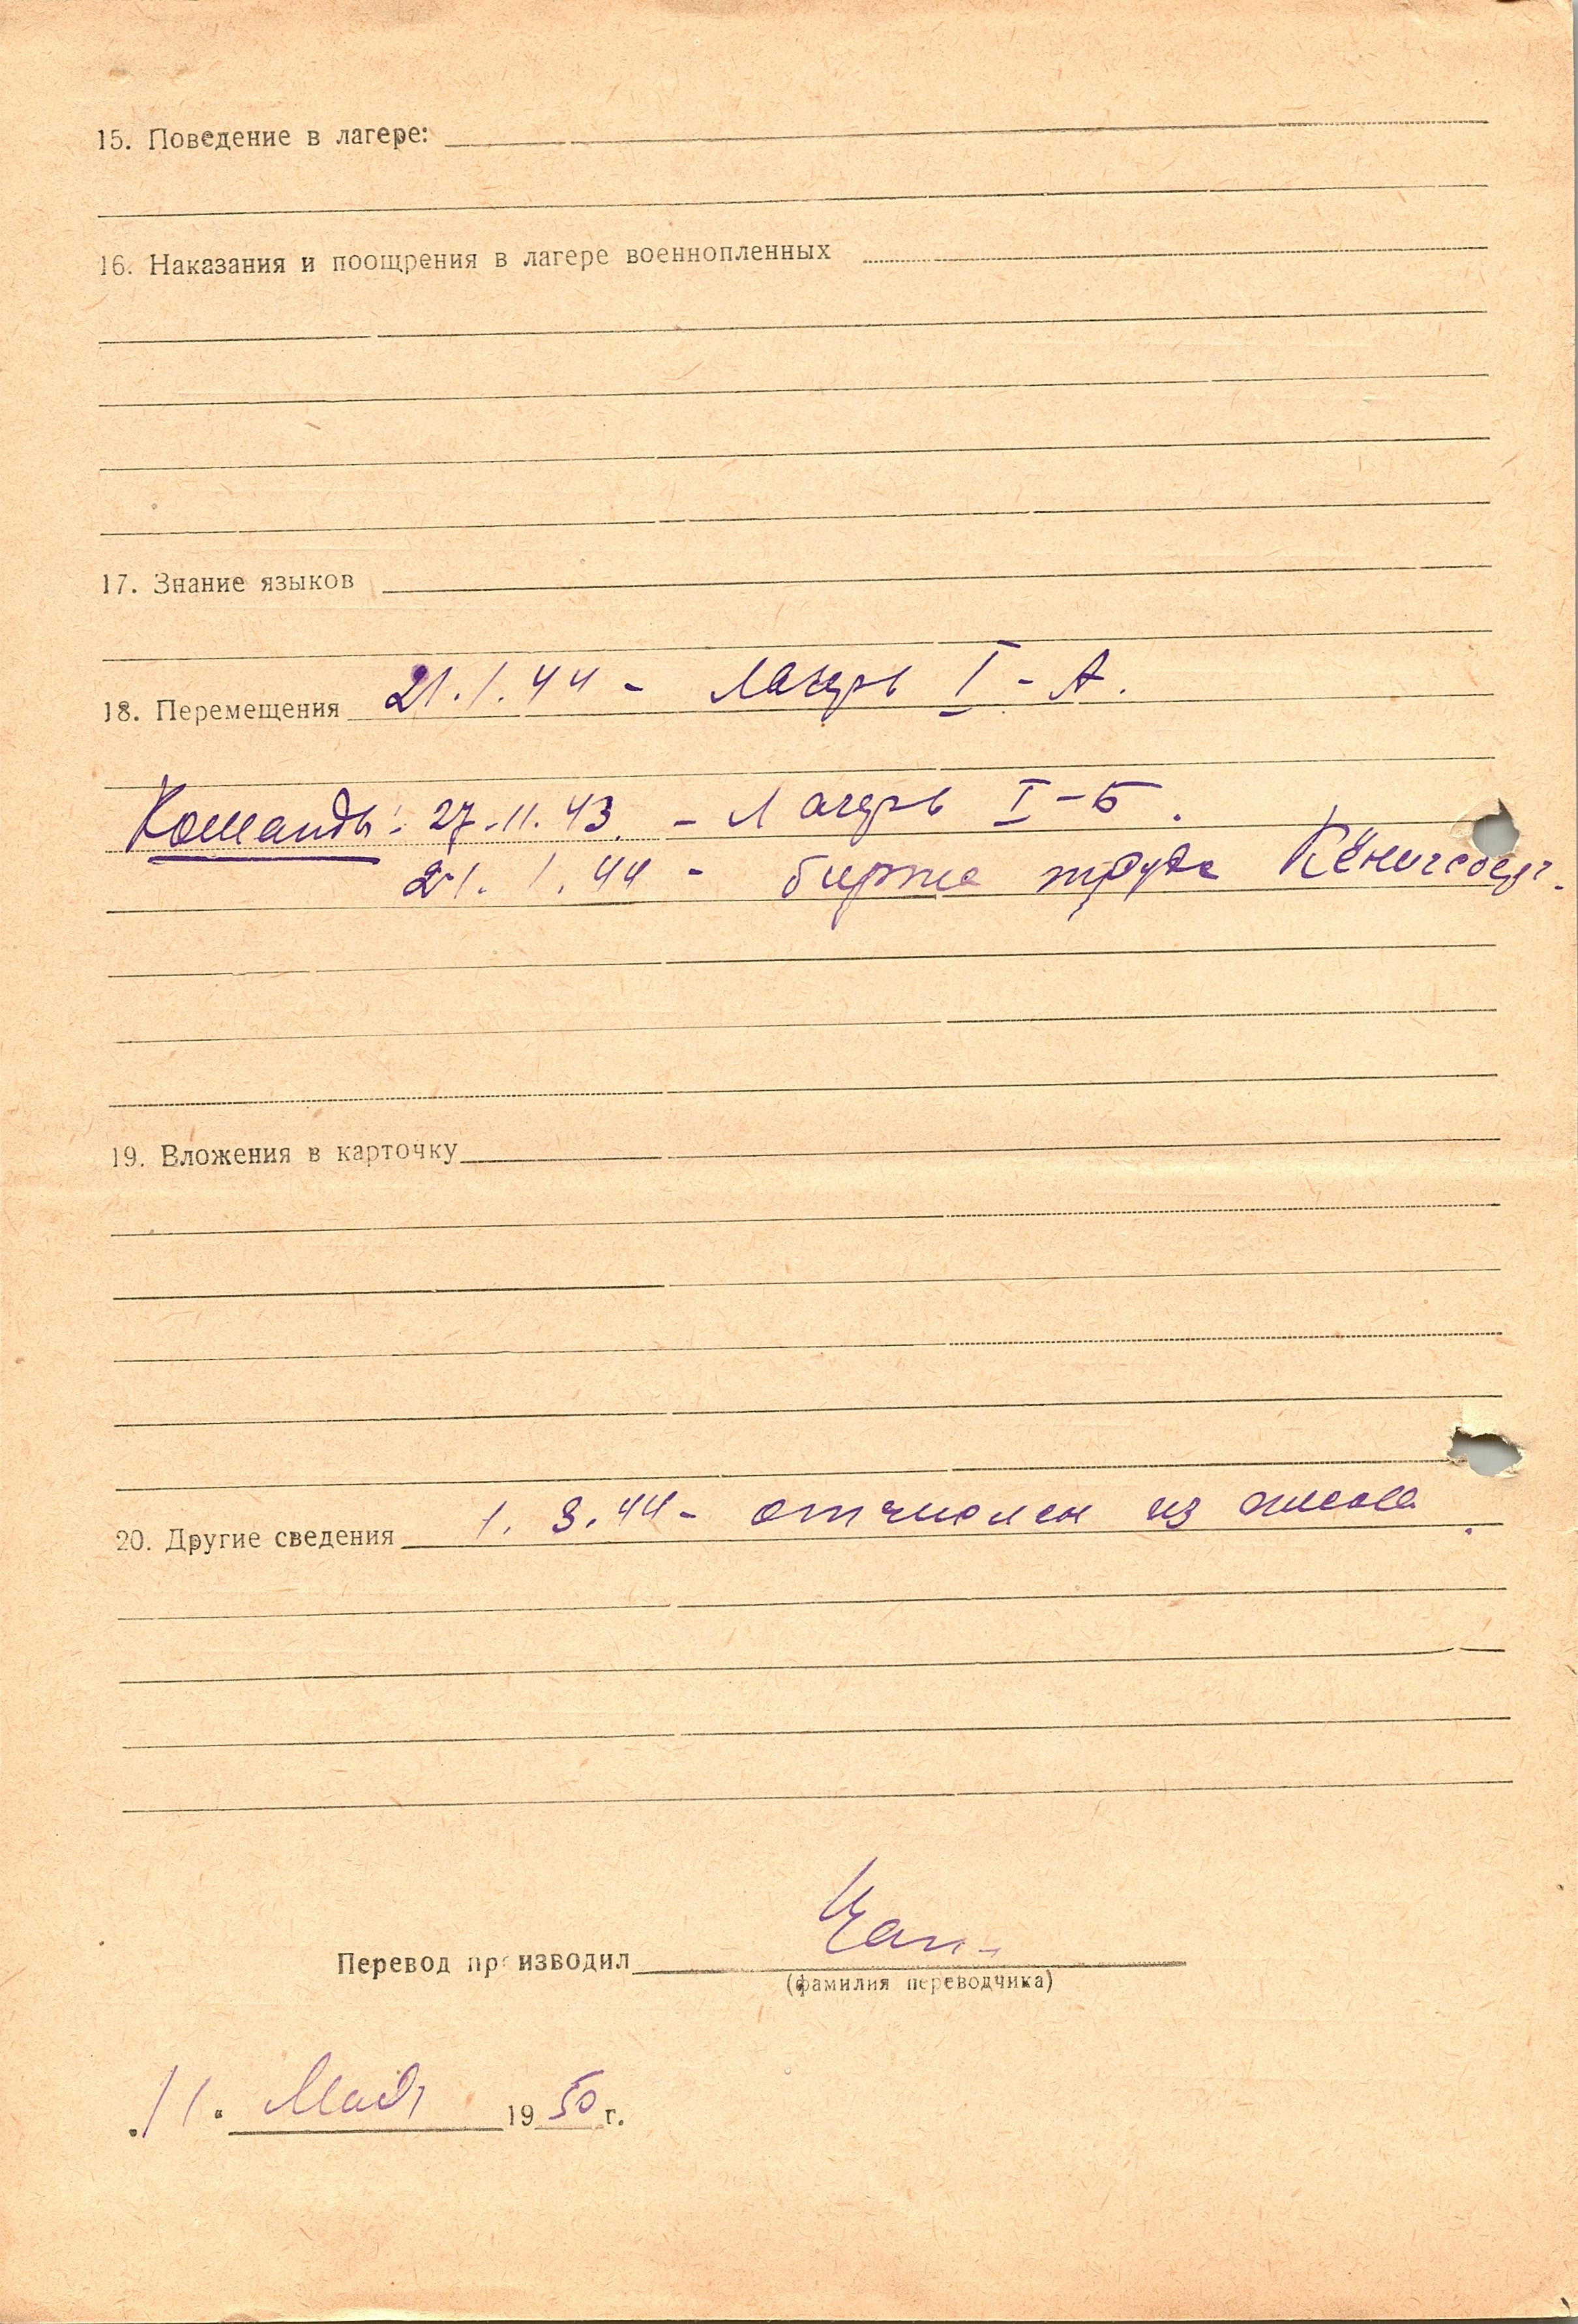 15. Поведение в лагере:
16. Наказания и поощрения в лагере военнопленных
17. Знание языков
18. Перемещения 21.1.44 - Лагерь I - А.
Команды: 27.11.43. - Лагерь I - Б.
21.1.44 - биржа труда Кёнигсберг.
19. Вложения в карточку
20. Другие сведения 1.3.44 - отчислен из
Перевод производил
(фамилия переводчика)
11. Мая 1950 г.